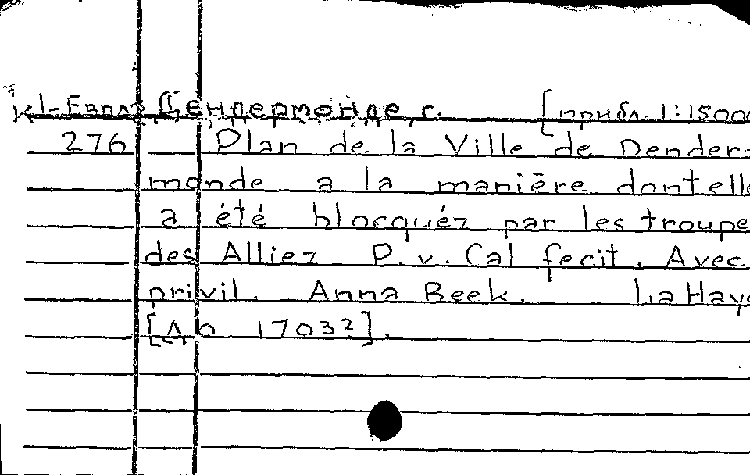 К1-Евпл Дендермонде, г. [прибл. 1:15000
276 Plan de la Ville de Dender-
monde a la manière dontelle
a été blocquéz par les troupe
des Alliez P. v. Cal fecit. Avec
privil. Anna Beek. La Haye
[До 1703?].